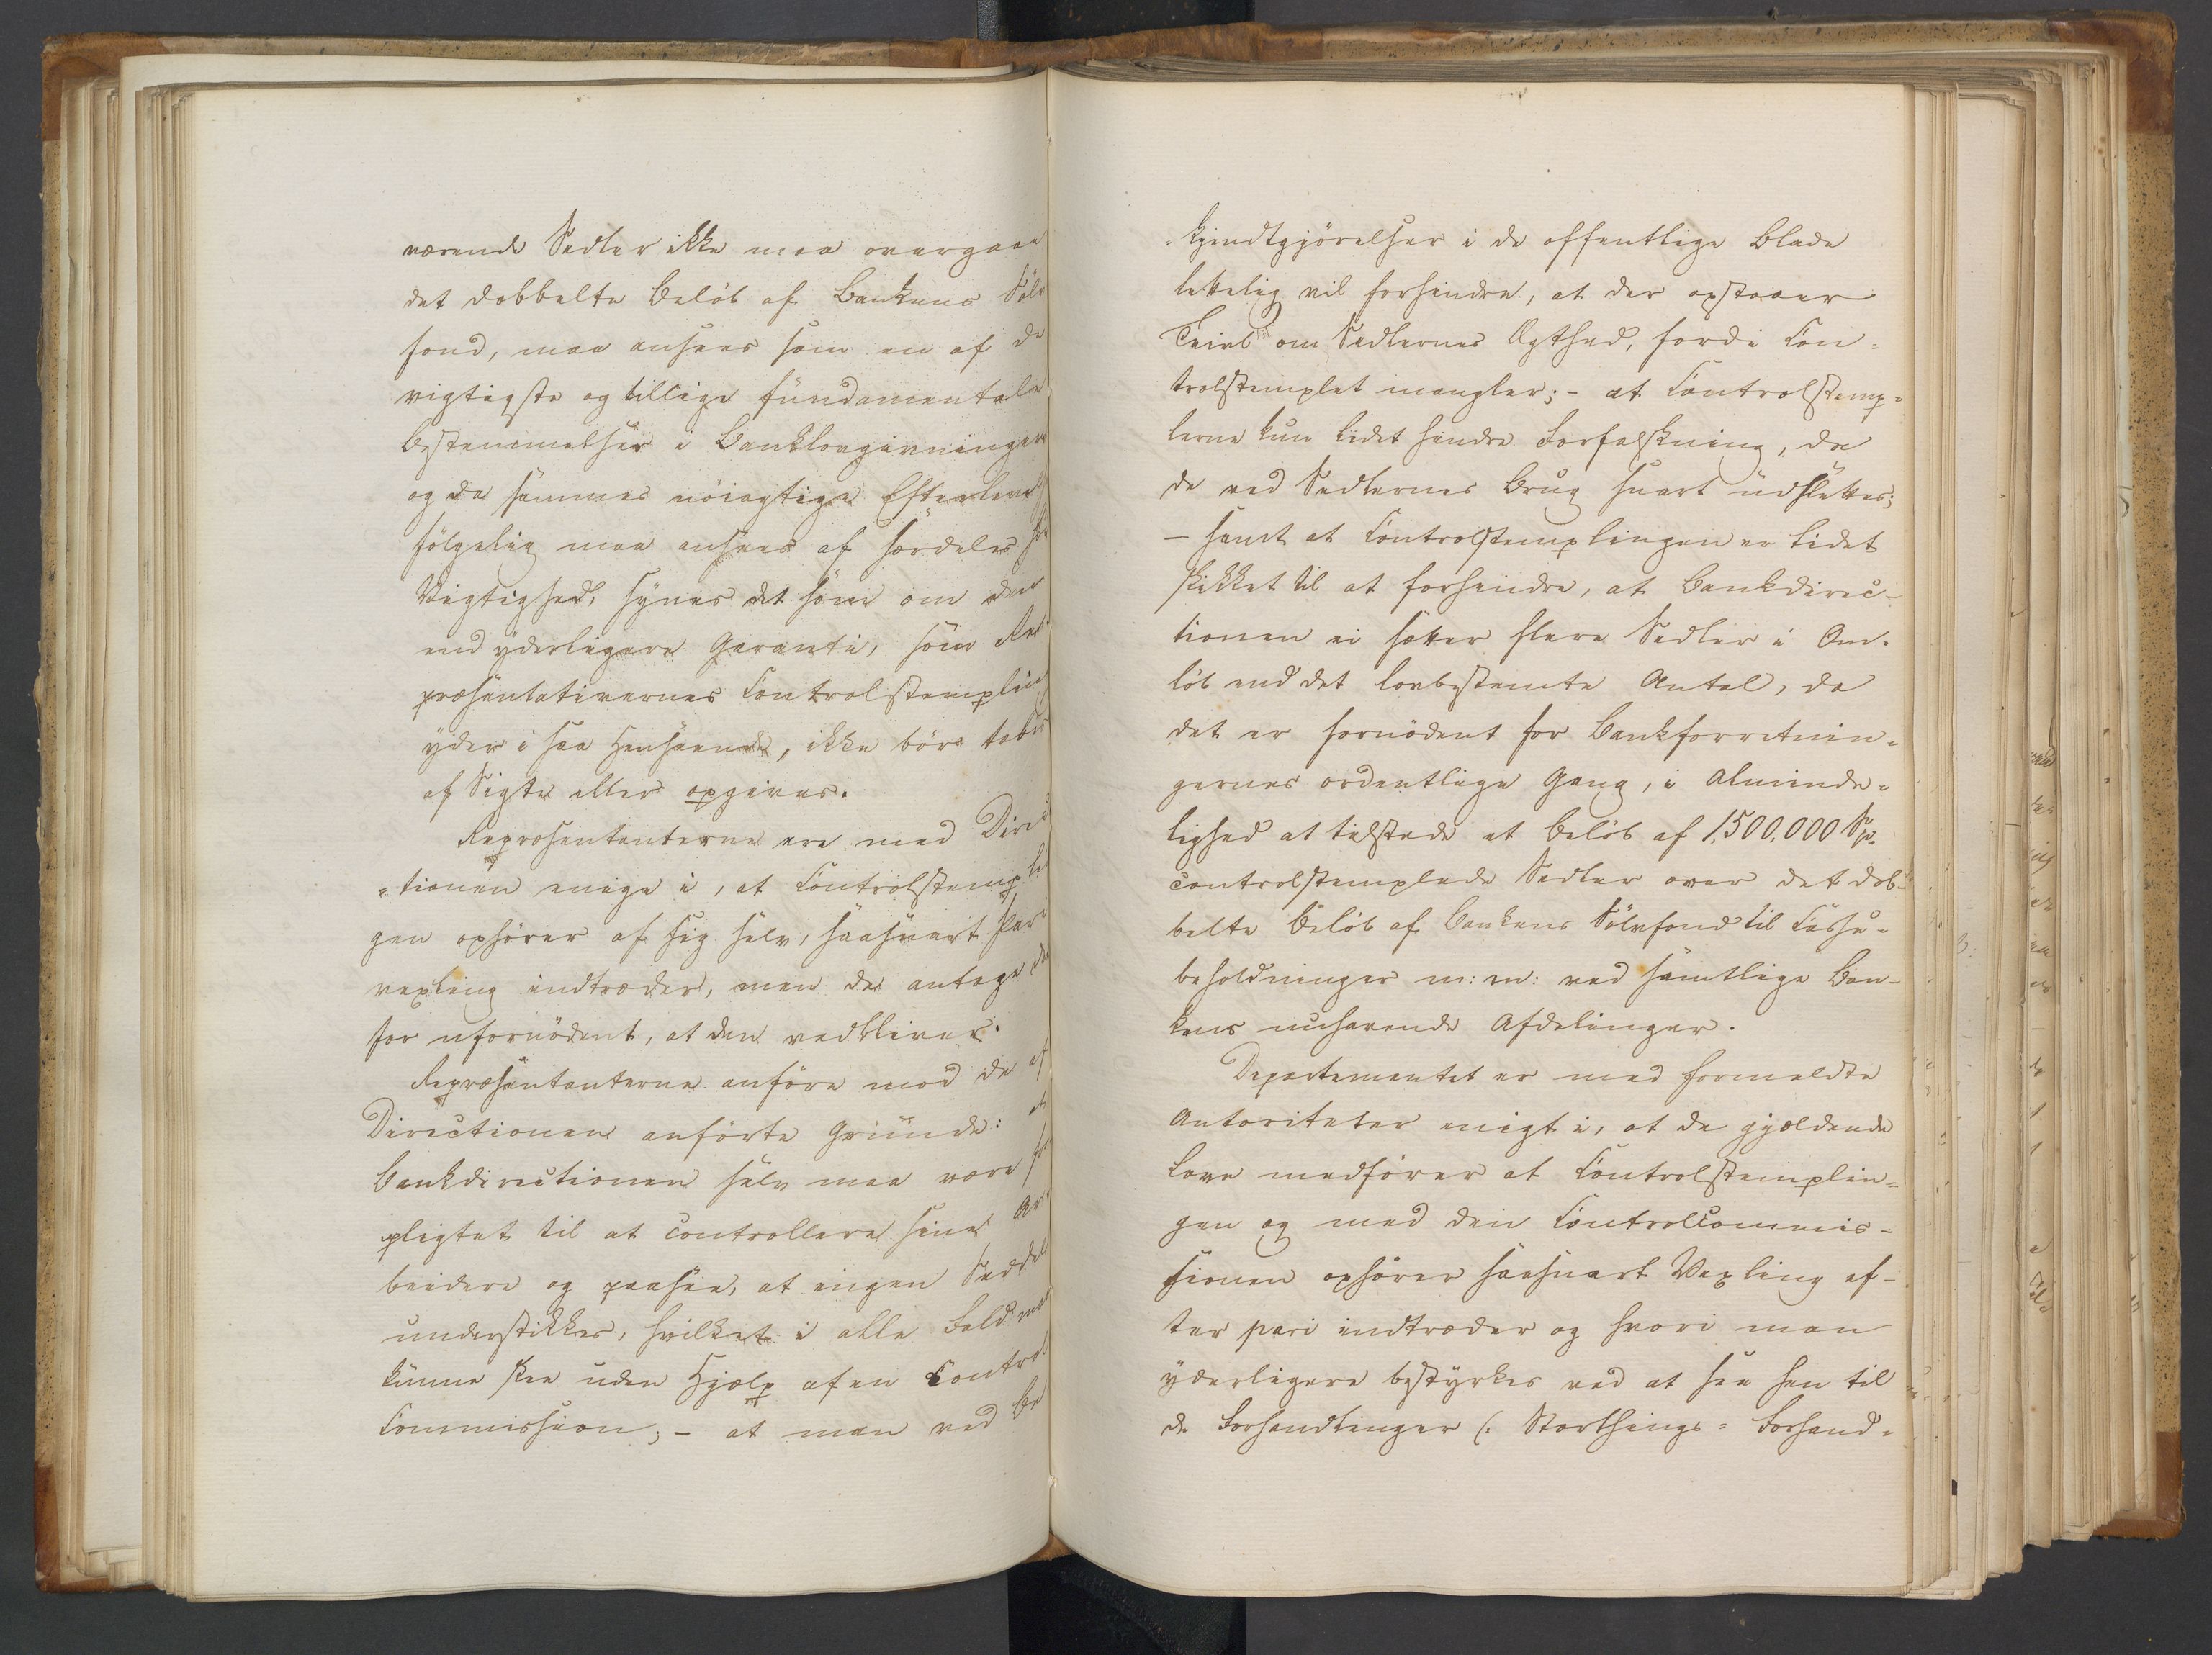 værende Sedler ikke maa overgaae
det dobbelte Beløb af Bankens Sølv
fond, maa ansees som en af de
vigtigste og tillige fundamentale
Bestemmelser i Banklovgivningen
og da sammes nøiagtige Efterlevelse
følgelig maa ansees af særdeles
Vigtighed, synes det som om den
end yderligere Garanti, som Re
præsentativernes Controlstemplin
yder i saa Henseende, ikke bør tabes
af Sigte eller opgives.
Repræsentanterne ere med Direc
-tionen enige i, at Controlstempli
gen ophører af sig selv, saasnart Pari
vexling indtræder, men de antage
for ufornødent, at den vedbliver.
Repræsentanterne anføre mod de af
Directionen anførte Grunde: at
Bankdirectionen selv maa være for
pligtet til at controllere sine Ar
beidere og paasee, at ingen Seddel
understikkes, hvilket i alle Fald maa
kunne skee uden Hjælp af en Control
Commission; - at man ved Be
-kjendtgjørelser i de offentlige Blade
lettelig vil forhindre, at der opstaaer
Tvivl om Sedlernes Ægthed, fordi Con-
trolstemplet mangler; - at Controlstemp-
lerne kun lidet hindre Forfalskning, da
de ved Sedlernes Brug snart udslettes;
- samt at Controlstemplingen er lidet
skikket til at forhindre, at Bankdirec-
tionen ei sætter flere Sedler i Om-
løb end det lovbestemte Antal, da
det er fornødent for Bankforretnin-
gernes ordentlige Gang, i Alminde-
lighed at tilstede et Beløb af 1,500,000 Sp.
controlstemplede Sedler over det dob-
belte Beløb af Bankens Sølvfond til Casse-
beholdninger m: m: ved samtlige Ban-
kens nuhavende Afdelinger.
Departementet er med formeldte
Autoriteter enigt i, at de gjældende
Love medfører at Controlstemplin-
gen og med den Controlcommis-
sionen ophører saasnart Vexling ef-
ter pari indtræder og hvori man
yderligere bestyrkes ved at see hen til
de Forhandlinger (. Storthings-Forhand-